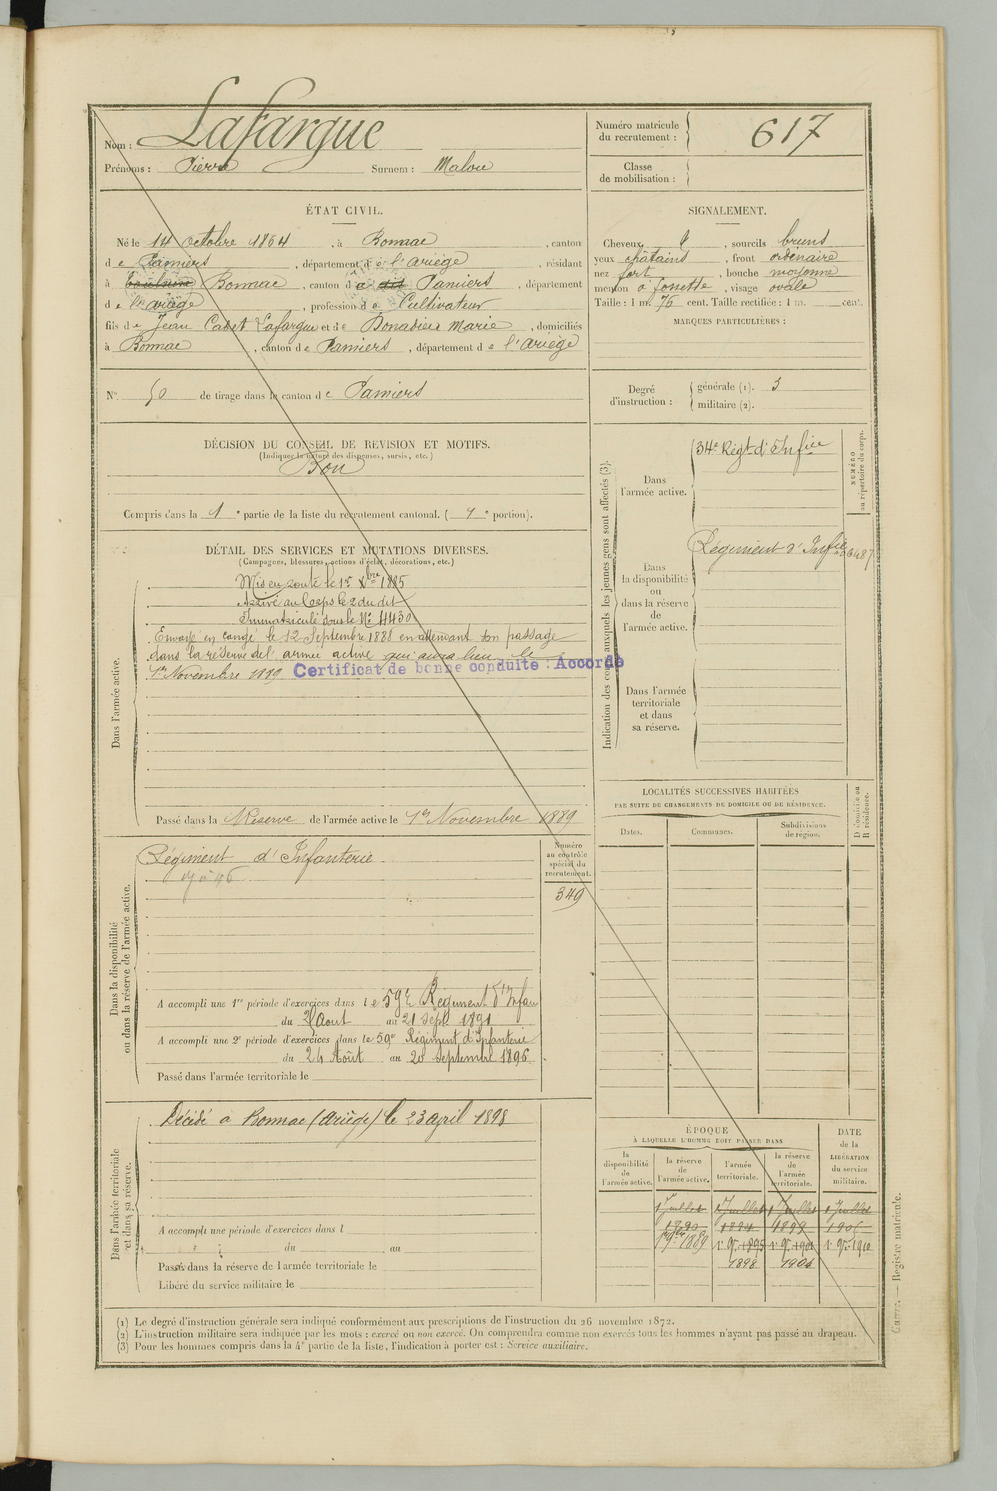 Nom : Lafargue
Prénoms : Pierre Surnom : Malou
Numéro matricule du recrutement : 617
Classe de mobilisation :
ÉTAT CIVIL.
Né le 14 octobre 1864, à Bonnac, canton
de Pamiers, département de l'Ariège, résidant
à Bonnac, canton de dit Pamiers, département
de l'Ariège, profession de Cultivateur
fils de Jean Cadet Lafargue et de Bonadieu Marie, domiciliés
à Bonnac, canton de Pamiers, département de l'Ariège
SIGNALEMENT.
Cheveux, sourcils bruns
yeux châtains, front ordinaire
nez fort, bouche moyenne
menton à fossette, visage ovale
Taille : 1 m. 75 cent. Taille rectifiée : 1 m. cent.
MARQUES PARTICULIÈRES :
N° 50 de tirage dans le canton de Pamiers
Degré d'instruction : générale (1). 3
militaire (2).
DÉCISION DU CONSEIL DE REVISION ET MOTIFS.
(Indiquer la nature des dispenses, sursis, etc.)
Bon
Compris dans la 1e partie de la liste du recrutement cantonal. (1e portion).
DÉTAIL DES SERVICES ET MUTATIONS DIVERSES.
(Campagnes, blessures, actions d'éclat, décorations, etc.)
Dans l'armée active.
Mis en route le 1er Xbre 1885
Arrivé au Corps le 2 du dit
Immatriculé sous le N° 4430
Envoyé en congé le 12 Septembre 1888 en attendant son passage
dans la réserve de l'armée active qui aura lieu le
1er Novembre 1889 Certificat de bonne conduite : Accordé
Passé dans la Réserve de l'armée active le 1er Novembre 1889
Indication des corps auxquels les jeunes gens sont affectés (3).
NUMÉRO au répertoire du corps.
Dans l'armée active. 34e Régt d'Infie
Dans la disponibilité ou dans la réserve de l'armée active. Régiment d'Infie
Dans l'armée territoriale et dans sa réserve.
LOCALITÉS SUCCESSIVES HABITÉES
PAR SUITE DE CHANGEMENTS DE DOMICILE OU DE RÉSIDENCE.
Dates. Communes. Subdivisions de région. D domicile ou R résidence.
Dans la disponibilité ou dans la réserve de l'armée active.
Régiment d'Infanterie
Numéro au contrôle spécial du recrutement.
349
A accompli une 1re période d'exercices dans le 59e Régiment d'Infan
du Août au 21 Sept 1891
A accompli une 2e période d'exercices dans le 59e Régiment d'Infanterie
du 24 Août au 20 Septembre 1896
Passé dans l'armée territoriale le
Dans l'armée territoriale et dans sa réserve.
Décédé à Bonnac (Ariège) le 23 avril 1898
A accompli une période d'exercices dans l
du au
Passé dans la réserve de l'armée territoriale le
Libéré du service militaire le
ÉPOQUE
À LAQUELLE L'HOMME DOIT PASSER DANS
la disponibilité de l'armée active. la réserve de l'armée active. l'armée territoriale. la réserve de l'armée territoriale.
DATE de la LIBÉRATION du service militaire.
1 Juillet 1 Juillet 1 Juillet 1 Juillet
1890
1898 1904
Registre matricule.
(1) Le degré d'instruction générale sera indiqué conformément aux prescriptions de l'instruction du 26 novembre 1872.
(2) L'instruction militaire sera indiquée par les mots : exercé ou non exercé. On comprendra comme non exercés tous les hommes n'ayant pas passé au drapeau.
(3) Pour les hommes compris dans la 4e partie de la liste, l'indication à porter est : Service auxiliaire.